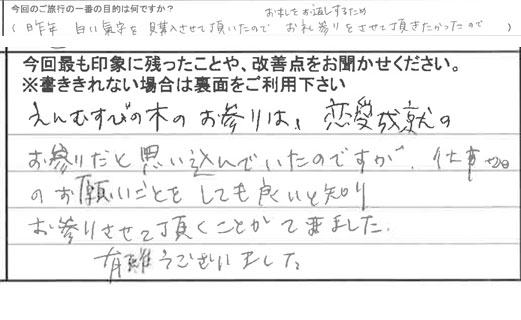 今回のご旅行の一番の目的は何ですか?
おふだをお返しするため
( 昨年 白い氣守を購入させて頂いたので お礼参りをさせて頂きたかったので )
今回最も印象に残ったことや、改善点をお聞かせください。
※書ききれない場合は裏面をご利用下さい
えんむすびの木のお参りは、恋愛成就の
お参りだと思い込んでいたのですが、仕事
のお願いごとをしても良いと知り
お参りさせて頂くことができました。
有難うございました。